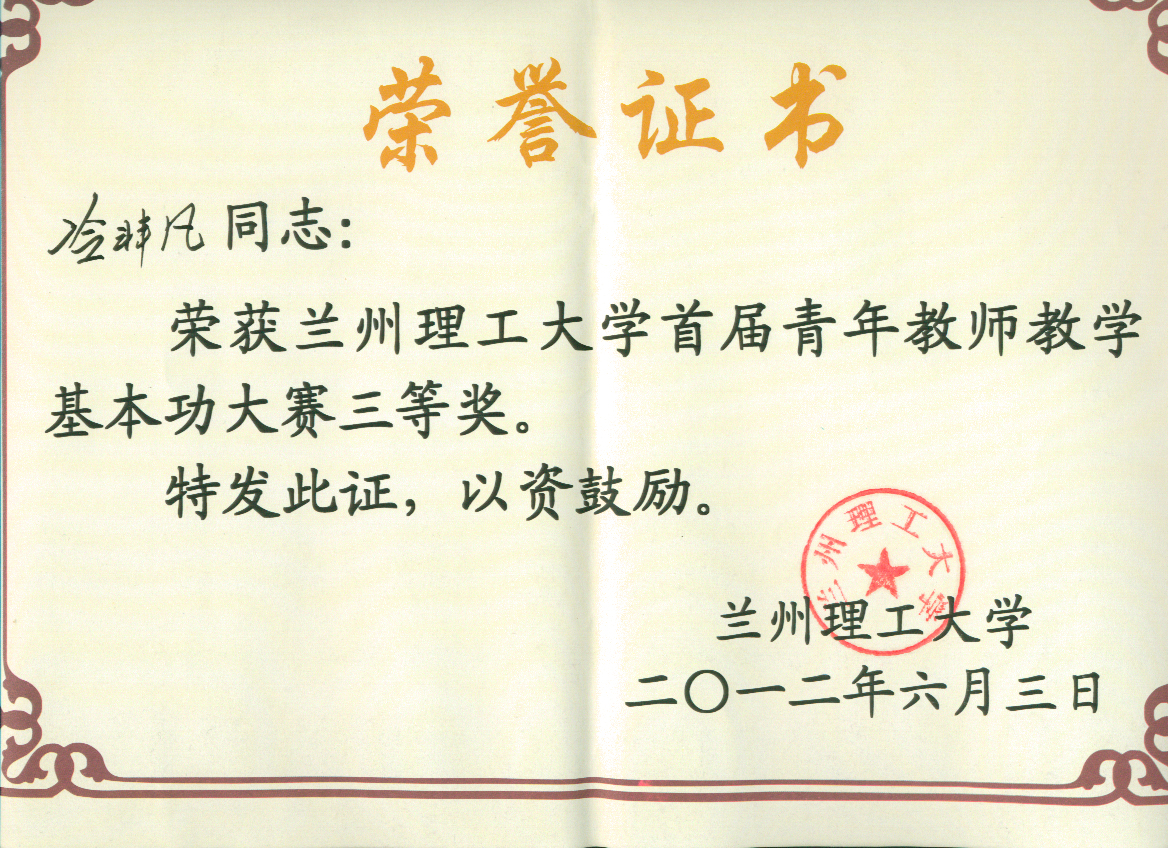 荣誉证书
冷非凡同志：
荣获兰州理工大学首届青年教师教学
基本功大赛三等奖。
特发此证，以资鼓励。
兰州理工大学
兰州理工大学
二〇一二年六月三日